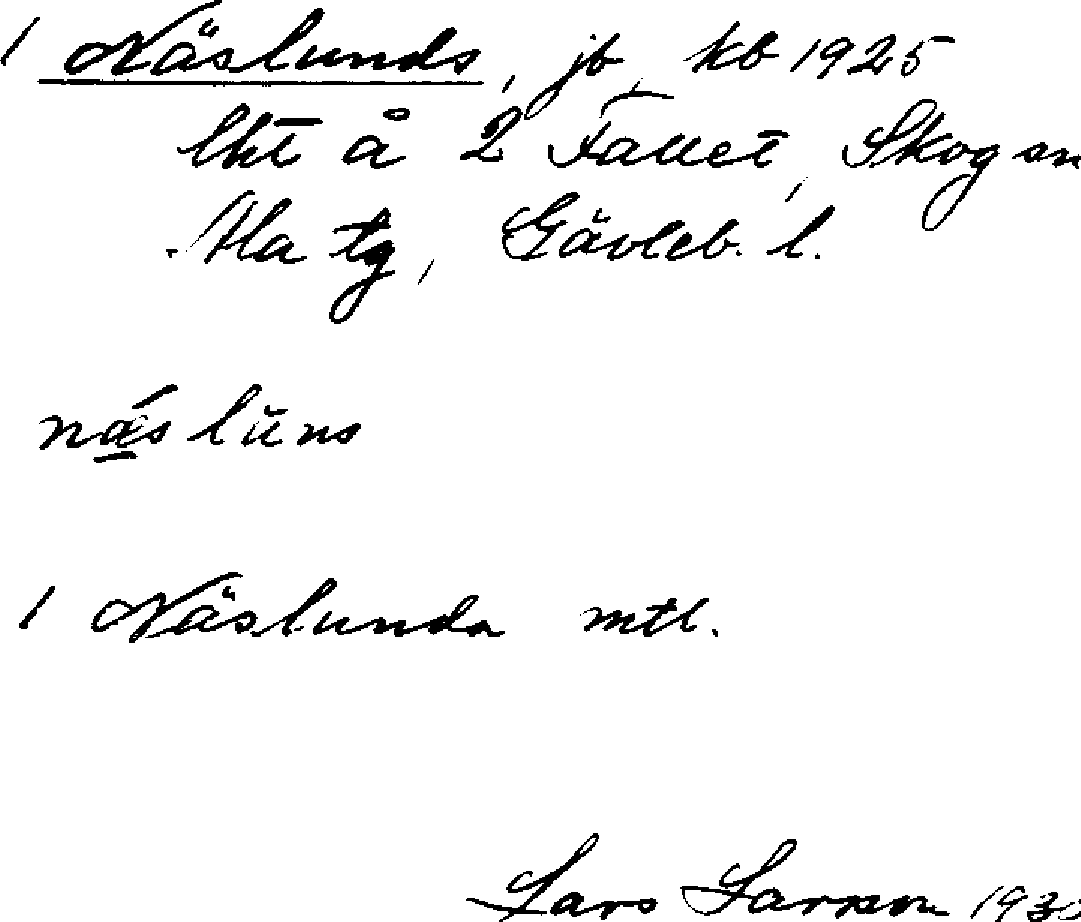 1 Näslunds, jb, kb 1925
lht å 2 Fallet, Skog sn
Ala tg, Gävleb. l.
nä́s lŭns
1 Näslunda mtl.
Lars Larsson 193